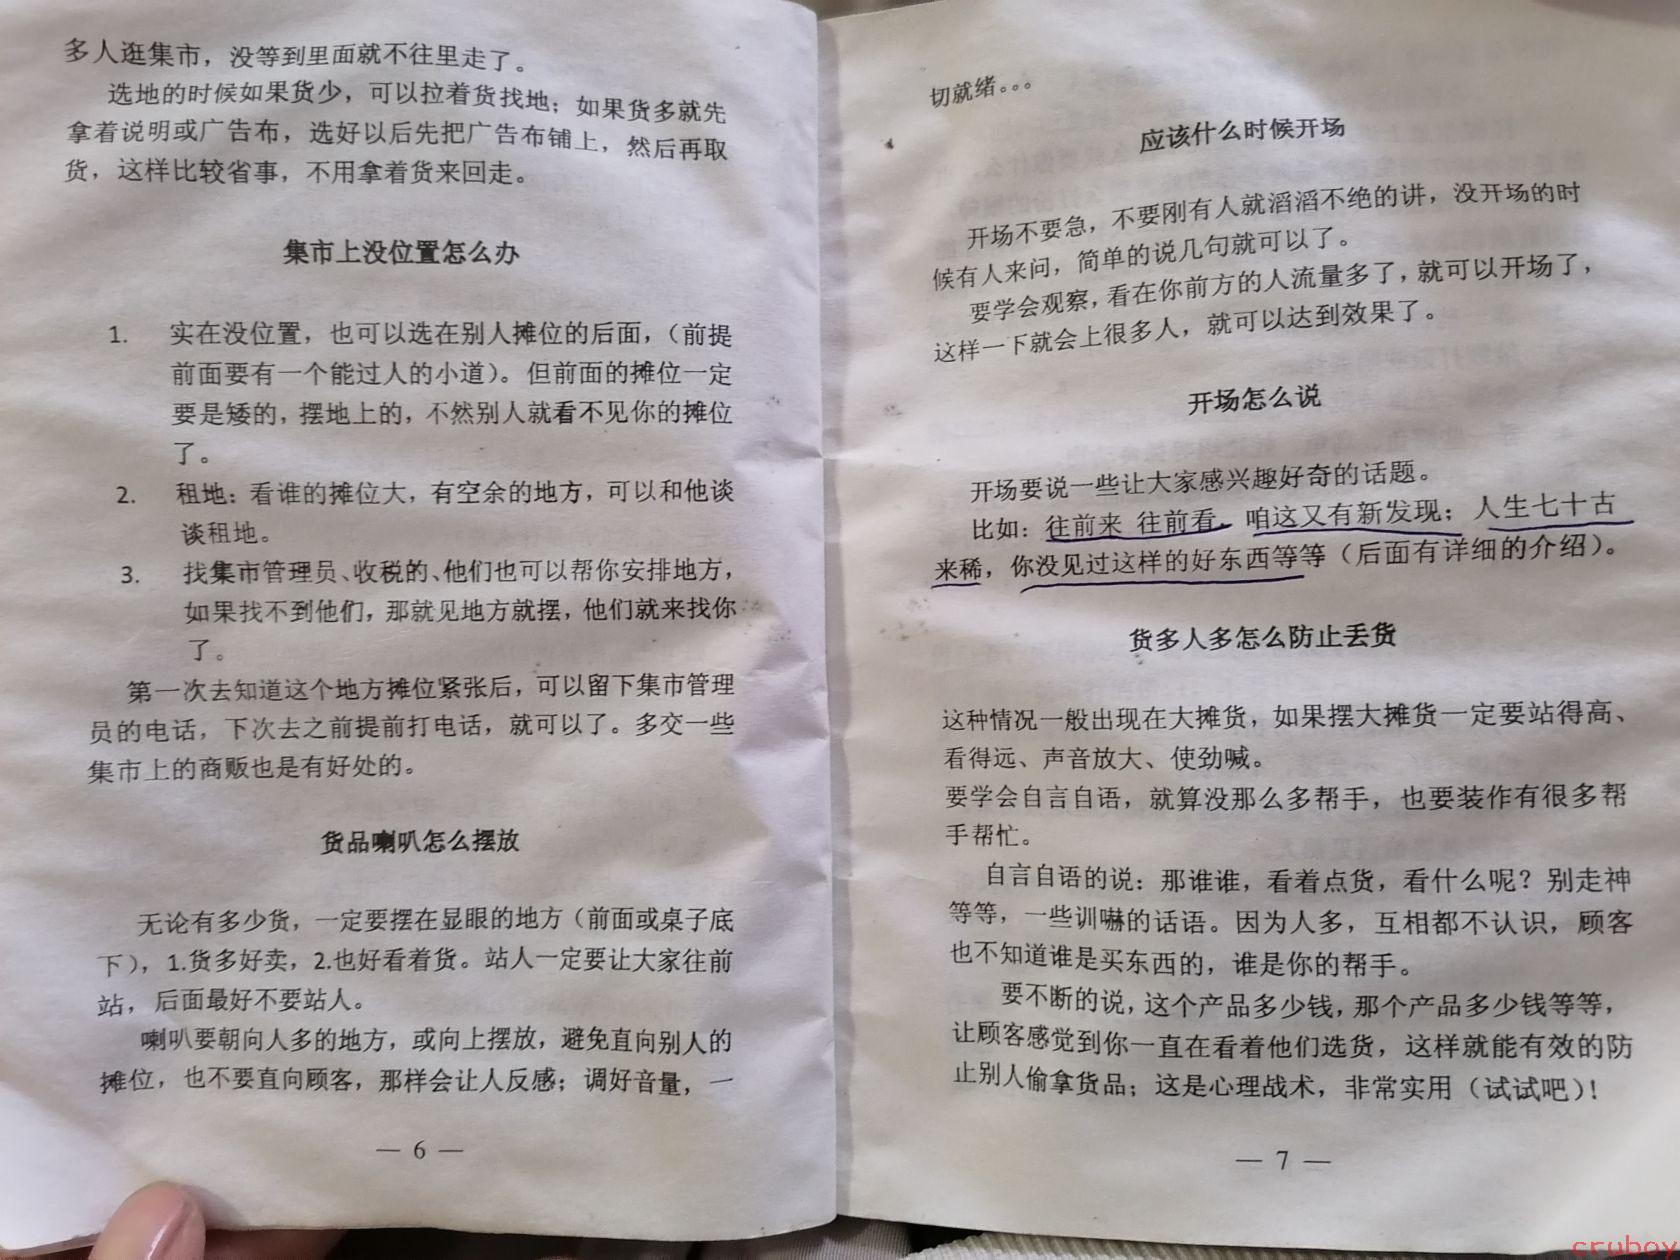 多人逛集市，没等到里面就不往里走了。
选地的时候如果货少，可以拉着货找地；如果货多就先
拿着说明或广告布，选好以后先把广告布铺上，然后再取
货，这样比较省事，不用拿着货来回走。
集市上没位置怎么办
1. 实在没位置，也可以选在别人摊位的后面，（前提
前面要有一个能过人的小道）。但前面的摊位一定
要是矮的，摆地上的，不然别人就看不见你的摊位
了。
2. 租地：看谁的摊位大，有空余的地方，可以和他谈
谈租地。
3. 找集市管理员、收税的、他们也可以帮你安排地方，
如果找不到他们，那就见地方就摆，他们就来找你
了。
第一次去知道这个地方摊位紧张后，可以留下集市管理
员的电话，下次去之前提前打电话，就可以了。多交一些
集市上的商贩也是有好处的。
货品喇叭怎么摆放
无论有多少货，一定要摆在显眼的地方（前面或桌子底
下），1.货多好卖，2.也好看着货。站人一定要让大家往前
站，后面最好不要站人。
喇叭要朝向人多的地方，或向上摆放，避免直向别人的
摊位，也不要直向顾客，那样会让人反感；调好音量，一
— 6 —
切就绪。。。
应该什么时候开场
开场不要急，不要刚有人就滔滔不绝的讲，没开场的时
候有人来问，简单的说几句就可以了。
要学会观察，看在你前方的人流量多了，就可以开场了，
这样一下就会上很多人，就可以达到效果了。
开场怎么说
开场要说一些让大家感兴趣好奇的话题。
比如：往前来 往前看，咱这又有新发现；人生七十古
来稀，你没见过这样的好东西等等（后面有详细的介绍）。
货多人多怎么防止丢货
这种情况一般出现在大摊货，如果摆大摊货一定要站得高、
看得远、声音放大、使劲喊。
要学会自言自语，就算没那么多帮手，也要装作有很多帮
手帮忙。
自言自语的说：那谁谁，看着点货，看什么呢？别走神
等等，一些训嚇的话语。因为人多，互相都不认识，顾客
也不知道谁是买东西的，谁是你的帮手。
要不断的说，这个产品多少钱，那个产品多少钱等等，
让顾客感觉到你一直在看着他们选货，这样就能有效的防
止别人偷拿货品；这是心理战术，非常实用（试试吧）！
— 7 —
cruboy